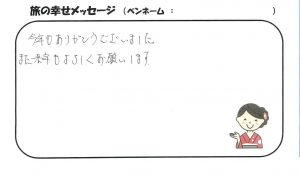 旅の幸せメッセージ (ペンネーム : )
今年もありがとうございました
また来年もよろしくお願いします